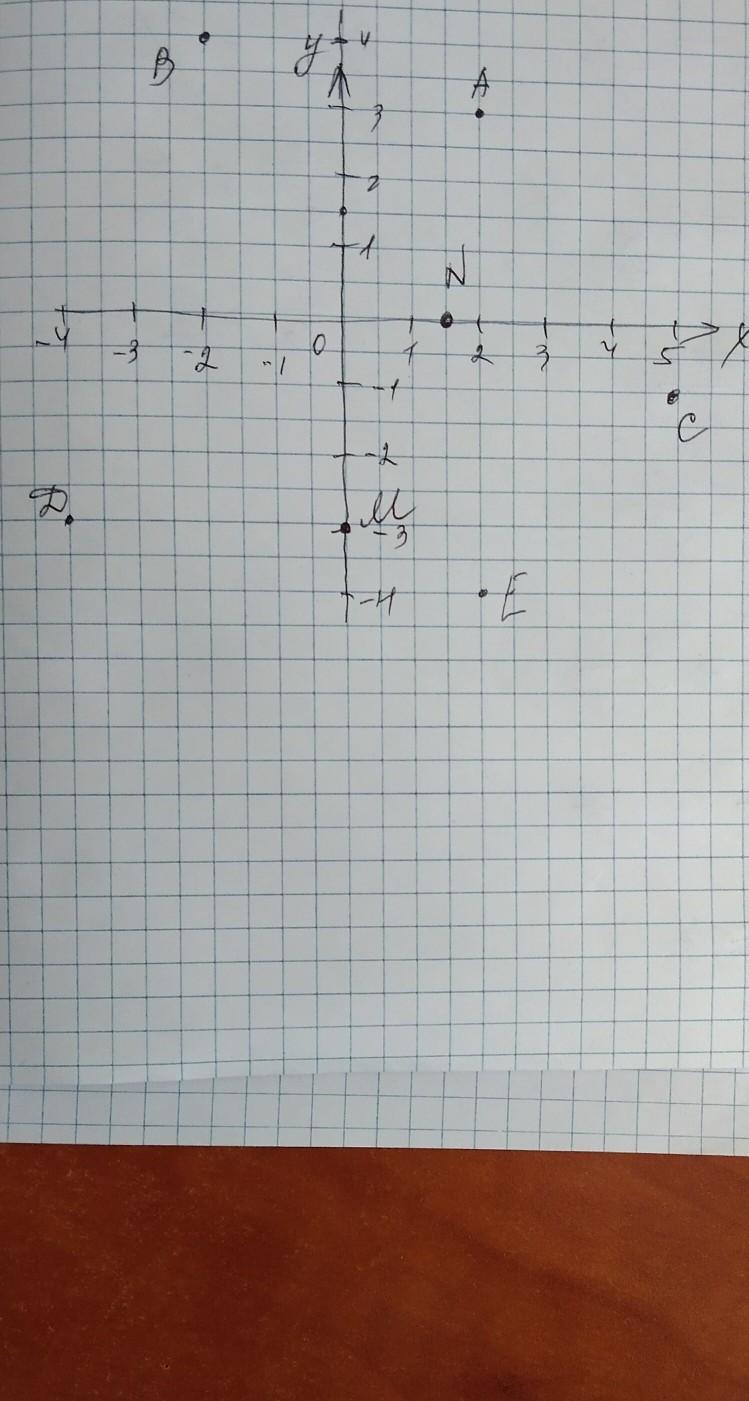 y 4
B
A
3
2
1
N
-4 -3 -2 -1 0 1 2 3 4 5 x
-1
C
-2
D
M
-3
-4 E